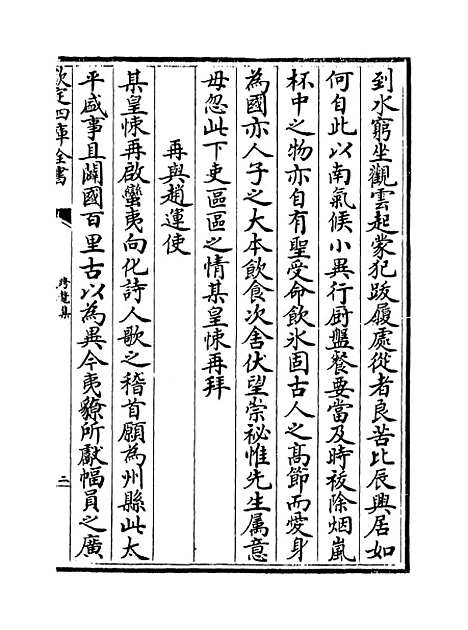 到水窮坐觀雲起蒙犯跋履處從者良苦比辰興居如
何自此以南氣候小異行厨盤餐要當及時祓除烟嵐
杯中之物亦自有聖受命飲氷固古人之髙節而愛身
為國亦人子之大本飲食次舍伏望崇祕惟先生属意
毋忽此下吏區區之情某皇悚再拜
再與趙運使
某皇悚再啟蠻夷向化詩人歌之稽首願為州縣此太
平盛事且闢國百里古以為異今夷獠所獻幅員之廣
欽定四庫全書
二